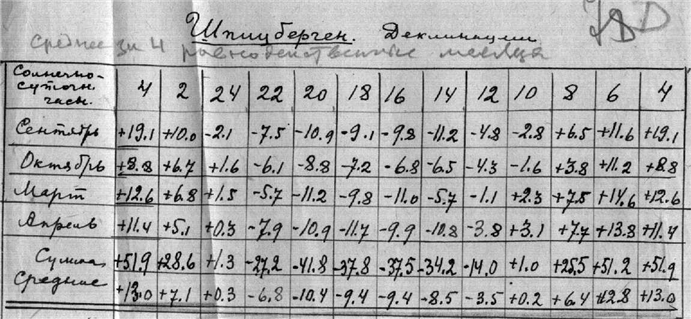 Шпицберген. Деклинации
Среднее за 4 равноденственные месяца
Солнечно-
суточн.
часы. 4 2 24 22 20 18 16 14 12 10 8 6 4
Сентябрь +19.1 +10.0 -2.1 -7.5 -10.9 -9.1 -9.8 -11.2 -4.8 -2.8 +6.5 +11.6 +19.1
Октябрь +8.8 +6.7 +1.6 -6.1 -8.8 -7.2 -6.8 -6.5 -4.3 -1.6 +3.8 +11.2 +8.8
Март +12.6 +6.8 +1.5 -5.7 -11.2 -9.8 -11.0 -5.7 -1.1 +2.3 +7.5 +14.6 +12.6
Апрель +11.4 +5.1 +0.3 -7.9 -10.9 -11.7 -9.9 -10.8 -3.8 +3.1 +7.7 +13.8 +11.4
Сумма +51.9 +28.6 +1.3 -27.2 -41.8 -37.8 -37.5 -34.2 -14.0 +1.0 +25.5 +51.2 +51.9
Средние +13.0 +7.1 +0.3 -6.8 -10.4 -9.4 -9.4 -8.5 -3.5 +0.2 +6.4 +12.8 +13.0